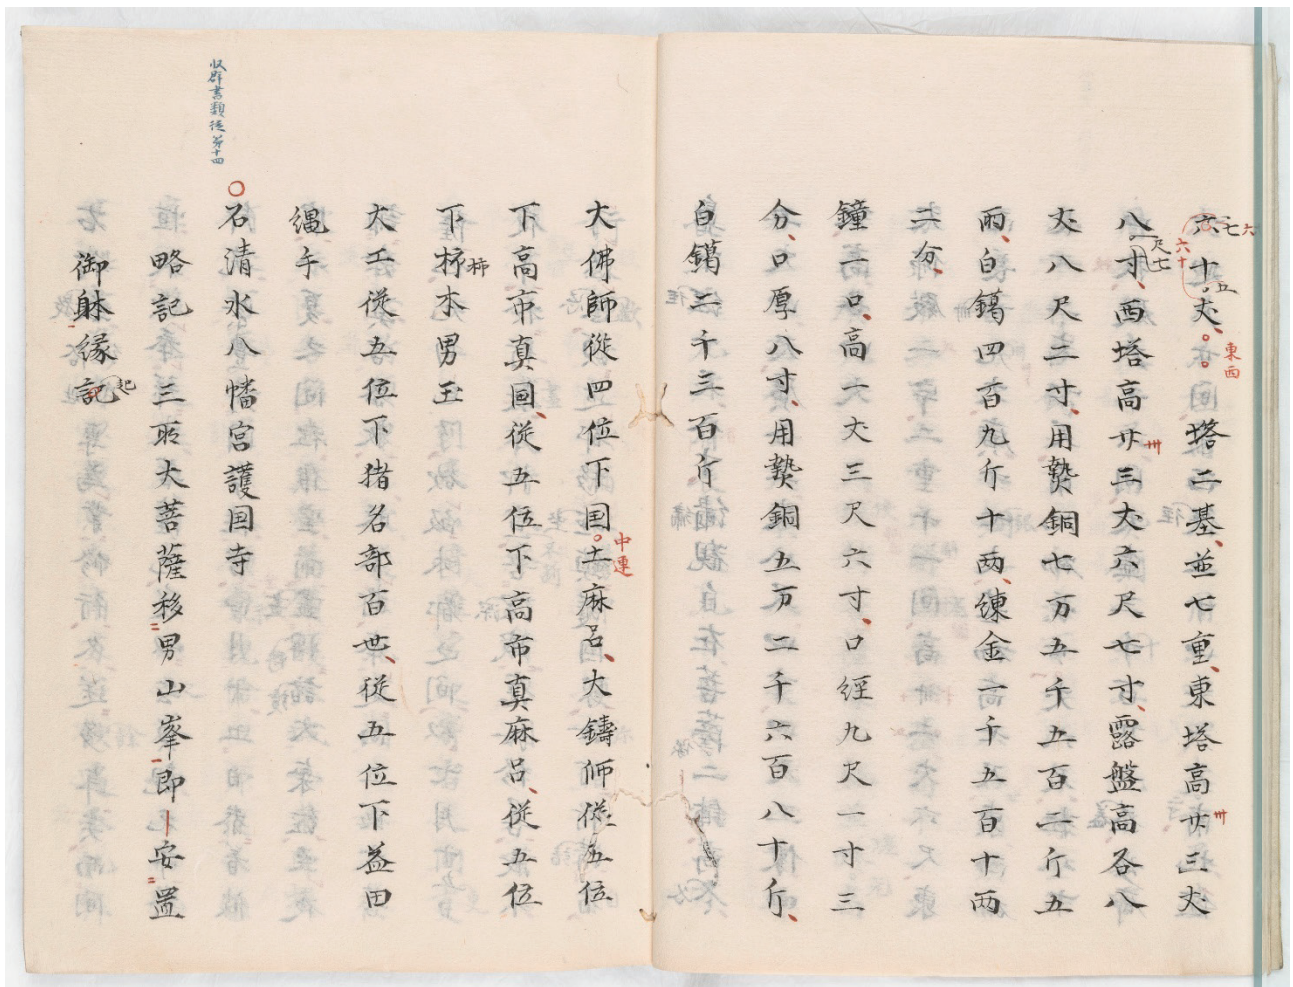 六十丈塔二基、並七重、東塔高廿三丈
八寸、西塔高廿三丈六尺七寸、露盤高各八
丈八尺二寸、用熟銅七万五千五百二斤五
両、白鑞四百九斤十両、練金一千五百十両
二分、
鐘一口、高一丈三尺六寸、口經九尺一寸三
分、口厚八寸、用熟銅五万二千六百八十斤、
白鑞二千三百斤
大佛師從四位下国土麻呂、大鑄師從五位
下高市真國、從五位下高市真麻呂、從五位
下柹本男玉
大工從五位下猪名部百世、從五位下益田
縄手
石清水八幡宮護国寺
略記三所大菩薩移男山峯即安置
御躰縁記
六
七
五
六十
東西
一尺七
卅
卅
中連
柿
起
収群書類従第十四